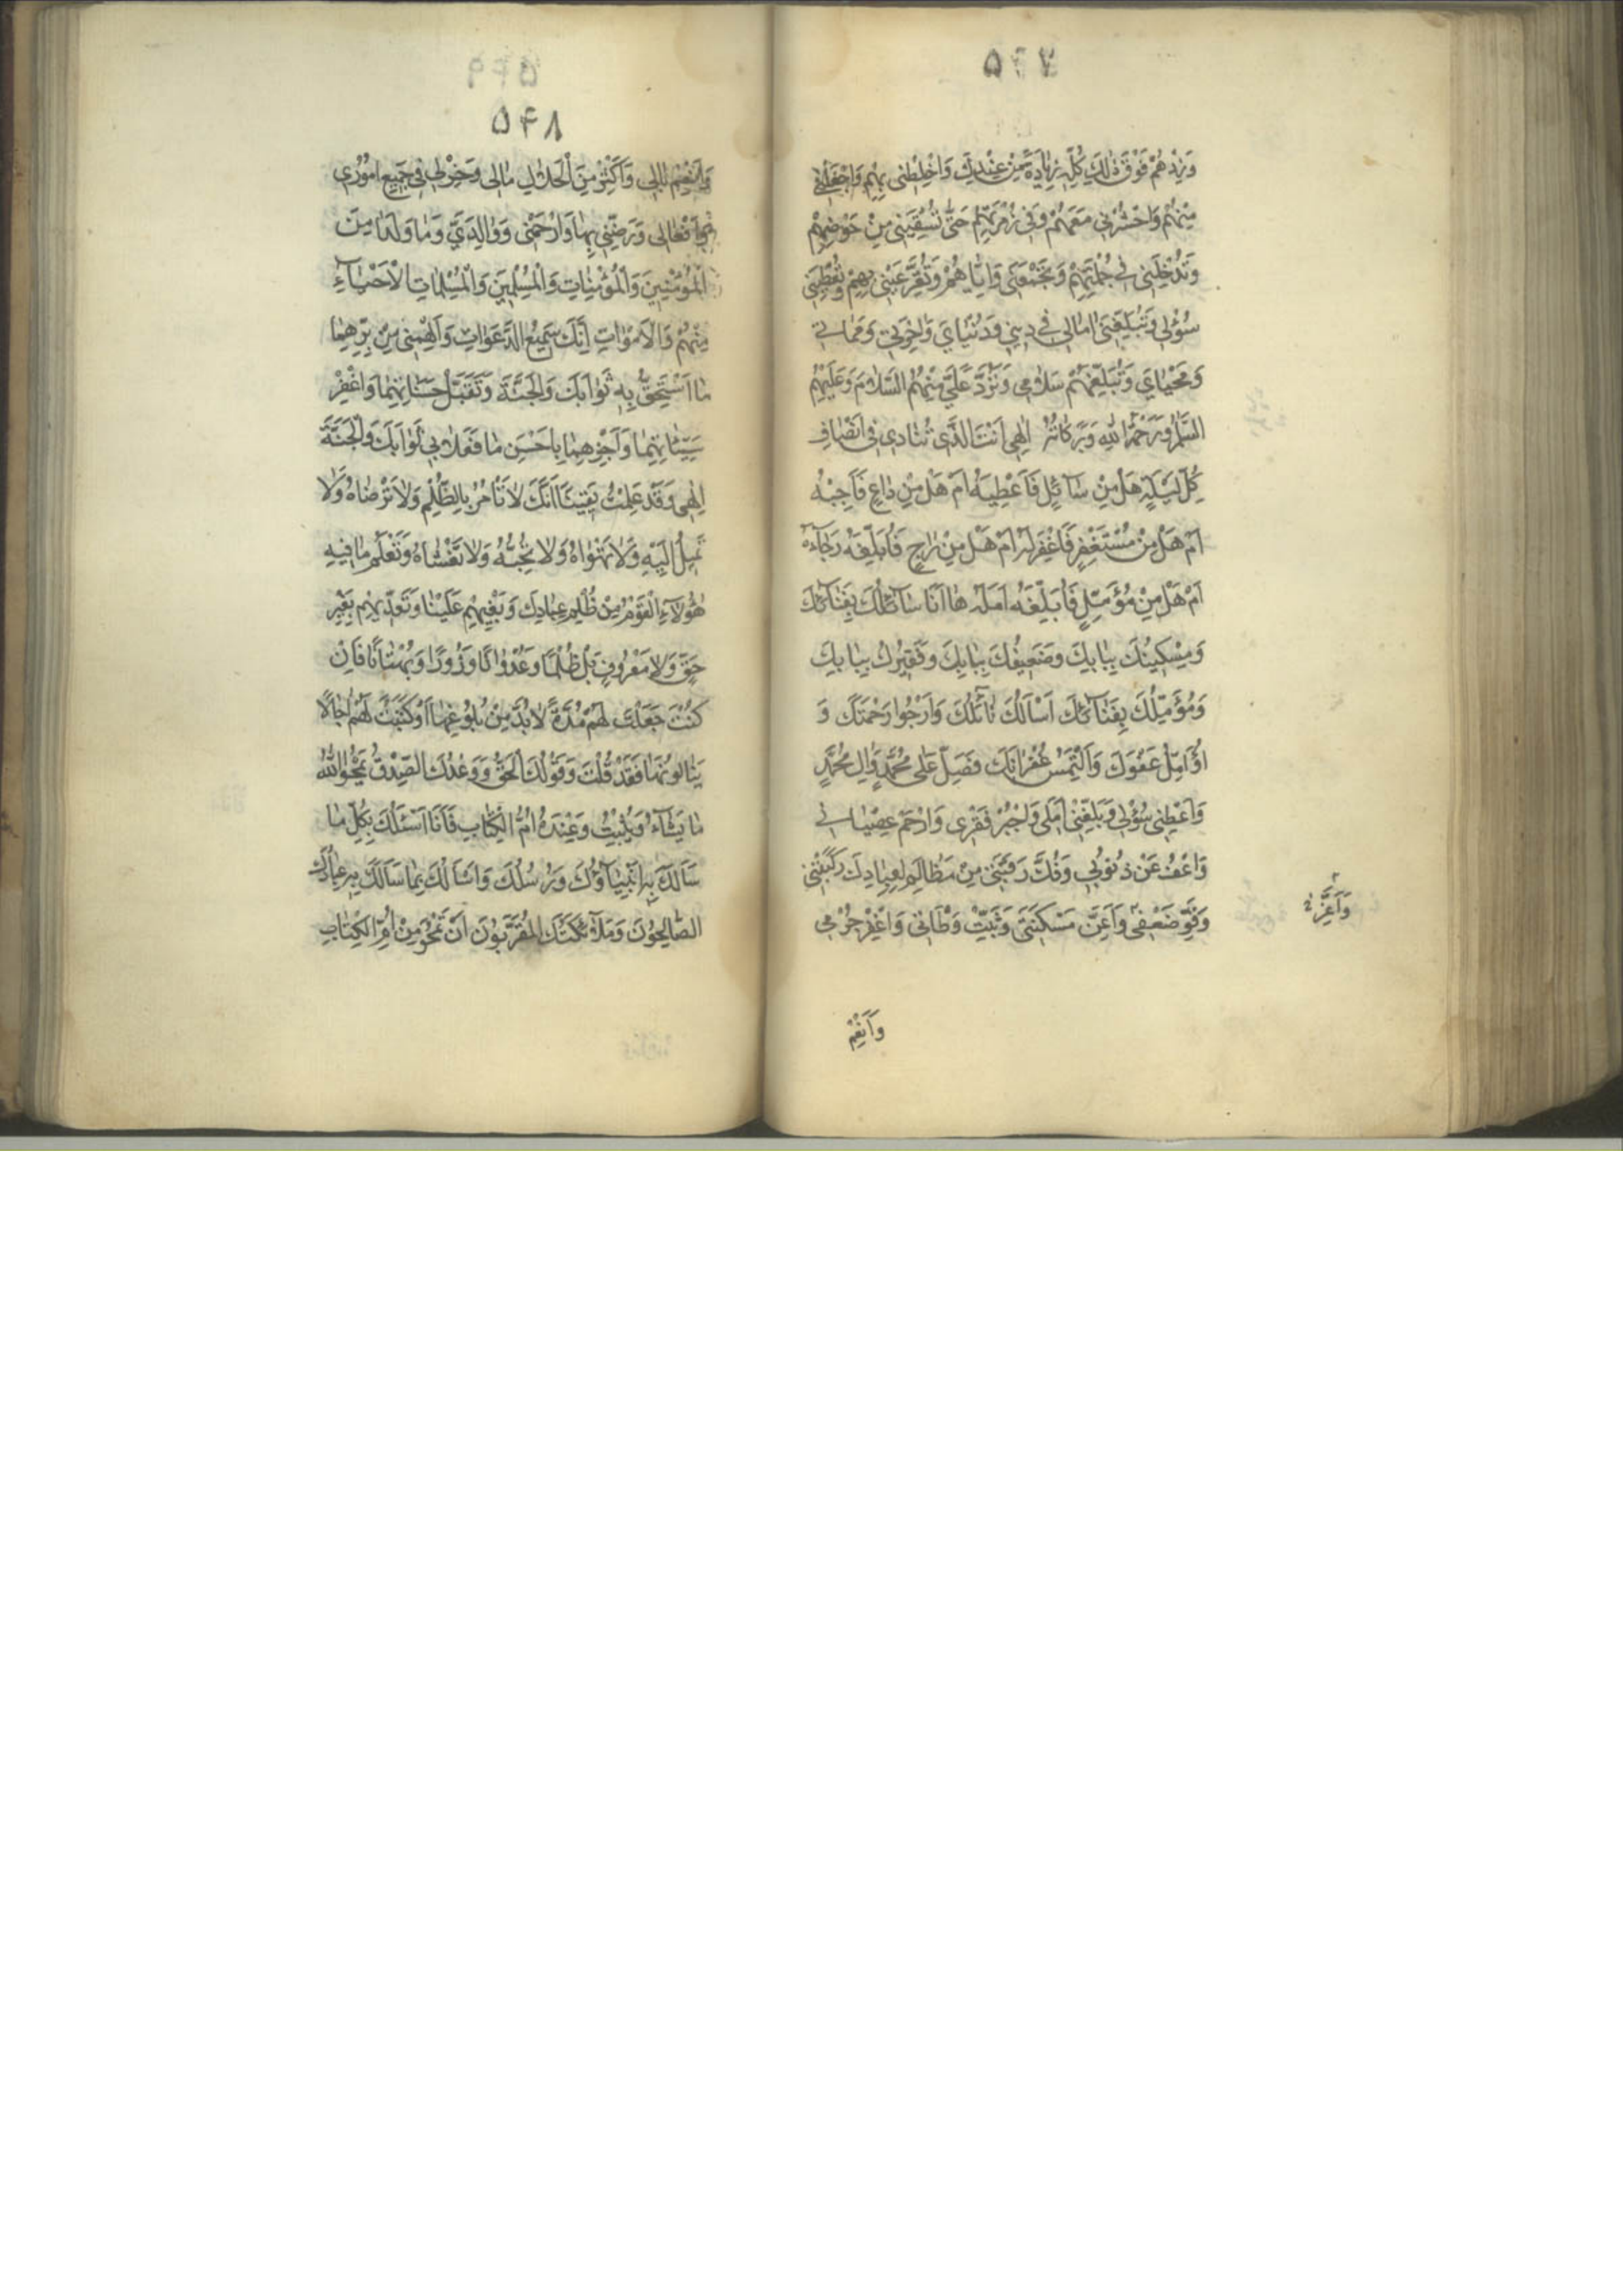 ۵۴۷
وَزِدْهُمْ فَوْقَ ذٰلِكَ كُلِّهِ زِيادَةً مِنْ عِنْدِكَ وَاخْلِطْنى بِهِمْ وَاجْعَلْنى
مِنْهُمْ وَاحْشُرْنى مَعَهُمْ وَفى زُمْرَتِهِمْ حَتّى تُسْقِيَنى مِنْ حَوْضِهِمْ
وَتُدْخِلَنى فى جُمْلَتِهِمْ وَتَجْمَعَنى وَاِيّاهُمْ وَتُقِرَّ عَيْنى بِهِمْ وَتُعْطِيَنى
سُؤْلى وَتُبَلِّغَنى اٰمالى فى دينى وَدُنْيايَ وَاٰخِرَتى وَمَماتى
وَمَحْيايَ وَتُبَلِّغَهُمْ سَلامى وَتَرُدَّ عَلَيَّ مِنْهُمُ السَّلامَ وَعَلَيْهِمُ
السَّلامُ وَرَحْمَةُ اللهِ وَبَرَكاتُهُ اِلٰهى اَنْتَ الَّذى تُنادى فى اَنْصافِ
كُلِّ لَيْلَةٍ هَلْ مِنْ سآئِلٍ فَاُعْطِيَهُ اَمْ هَلْ مِنْ داعٍ فَاُجيبَهُ
اَمْ هَلْ مِنْ مُسْتَغْفِرٍ فَاَغْفِرَ لَهُ اَمْ هَلْ مِنْ راجٍ فَاُبَلِّغَهُ رَجآءَهُ
اَمْ هَلْ مِنْ مُؤَمِّلٍ فَاُبَلِّغَهُ اَمَلَهُ ها اَنَا سآئِلُكَ بِفِنآئِكَ
وَمِسْكينُكَ بِبابِكَ وَضَعيفُكَ بِبابِكَ وَفَقيرُكَ بِبابِكَ
وَمُؤَمِّلُكَ بِفِنآئِكَ اَسْاَلُكَ نآئِلَكَ وَاَرْجُوا رَحْمَتَكَ وَ
اُؤَمِّلُ عَفْوَكَ وَاَلْتَمِسُ غُفْرانَكَ فَصَلِّ عَلى مُحَمَّدٍ وَاٰلِ مُحَمَّدٍ
وَاَعْطِنى سُؤْلى وَبَلِّغْنى اَمَلى وَاجْبُرْ فَقْرى وَارْحَمْ عِصْيانى
وَاعْفُ عَنْ ذُنُوبى وَفُكَّ رَقَبَتى مِنْ مَظالِمَ لِعِبادِكَ رَكِبَتْنى
وَقَوِّ ضَعْفى وَاَعِزَّ مَسْكَنَتى وَثَبِّتْ وَطْاَتى وَاغْفِرْ جُرْمى
وَاَعِزَّنى
وَاَنْعِمْ
۵۴۸
وَاَنْعِمْ بالى وَاَكْثِرْ مِنَ الْحَلالِ مالى وَخِرْ لى فى جَميعِ اُمُورى
وَاَفْعالى وَرَضِّنى بِها وَارْحَمْنى وَوالِدَيَّ وَما وَلَدا مِنَ
الْمُؤْمِنينَ وَالْمُؤْمِناتِ وَالْمُسْلِمينَ وَالْمُسْلِماتِ الْاَحْيآءِ
مِنْهُمْ وَالْاَمْواتِ اِنَّكَ سَميعُ الدَّعَواتِ وَاَلْهِمْنى مِنْ بِرِّهِما
ما اَسْتَحِقُّ بِهِ ثَوابَكَ وَالْجَنَّةَ وَتَقَبَّلْ حَسَناتِهِما وَاغْفِرْ
سَيِّئاتِهِما وَاَجْزِهِما بِاَحْسَنِ ما فَعَلا بى ثَوابَكَ وَالْجَنَّةَ
اِلٰهى وَقَدْ عَلِمْتُ يَقينًا اَنَّكَ لا تَاْمُرُ بِالظُّلْمِ وَلا تَرْضاهُ وَلا
تَميلُ اِلَيْهِ وَلا تَهْواهُ وَلا تُحِبُّهُ وَلا تَغْشاهُ وَتَعْلَمُ ما فيهِ
هٰؤُلآءِ الْقَوْمُ مِنْ ظُلْمِ عِبادِكَ وَبَغْيِهِمْ عَلَيْنا وَتَعَدّيهِمْ بِغَيْرِ
حَقٍّ وَلا مَعْرُوفٍ بَلْ ظُلْمًا وَعُدْوانًا وَزُورًا وَبُهْتانًا فَاِنْ
كُنْتَ جَعَلْتَ لَهُمْ مُدَّةً لا بُدَّ مِنْ بُلُوغِها اَوْ كَتَبْتَ لَهُمْ اٰجالًا
يَنالُونَها فَقَدْ قُلْتَ وَقَوْلُكَ الْحَقُّ وَوَعْدُكَ الصِّدْقُ يَمْحُوا اللهُ
ما يَشآءُ وَيُثْبِتُ وَعِنْدَهُ اُمُّ الْكِتابِ فَاَنَا اَسْئَلُكَ بِكُلِّ ما
سَاَلَكَ بِهِ اَنْبِيآؤُكَ وَرُسُلُكَ وَاَسْاَلُكَ بِما سَاَلَكَ بِهِ عِبادُكَ
الصّالِحُونَ وَمَلآئِكَتُكَ الْمُقَرَّبُونَ اَنْ تَمْحُوَ مِنْ اُمِّ الْكِتابِ